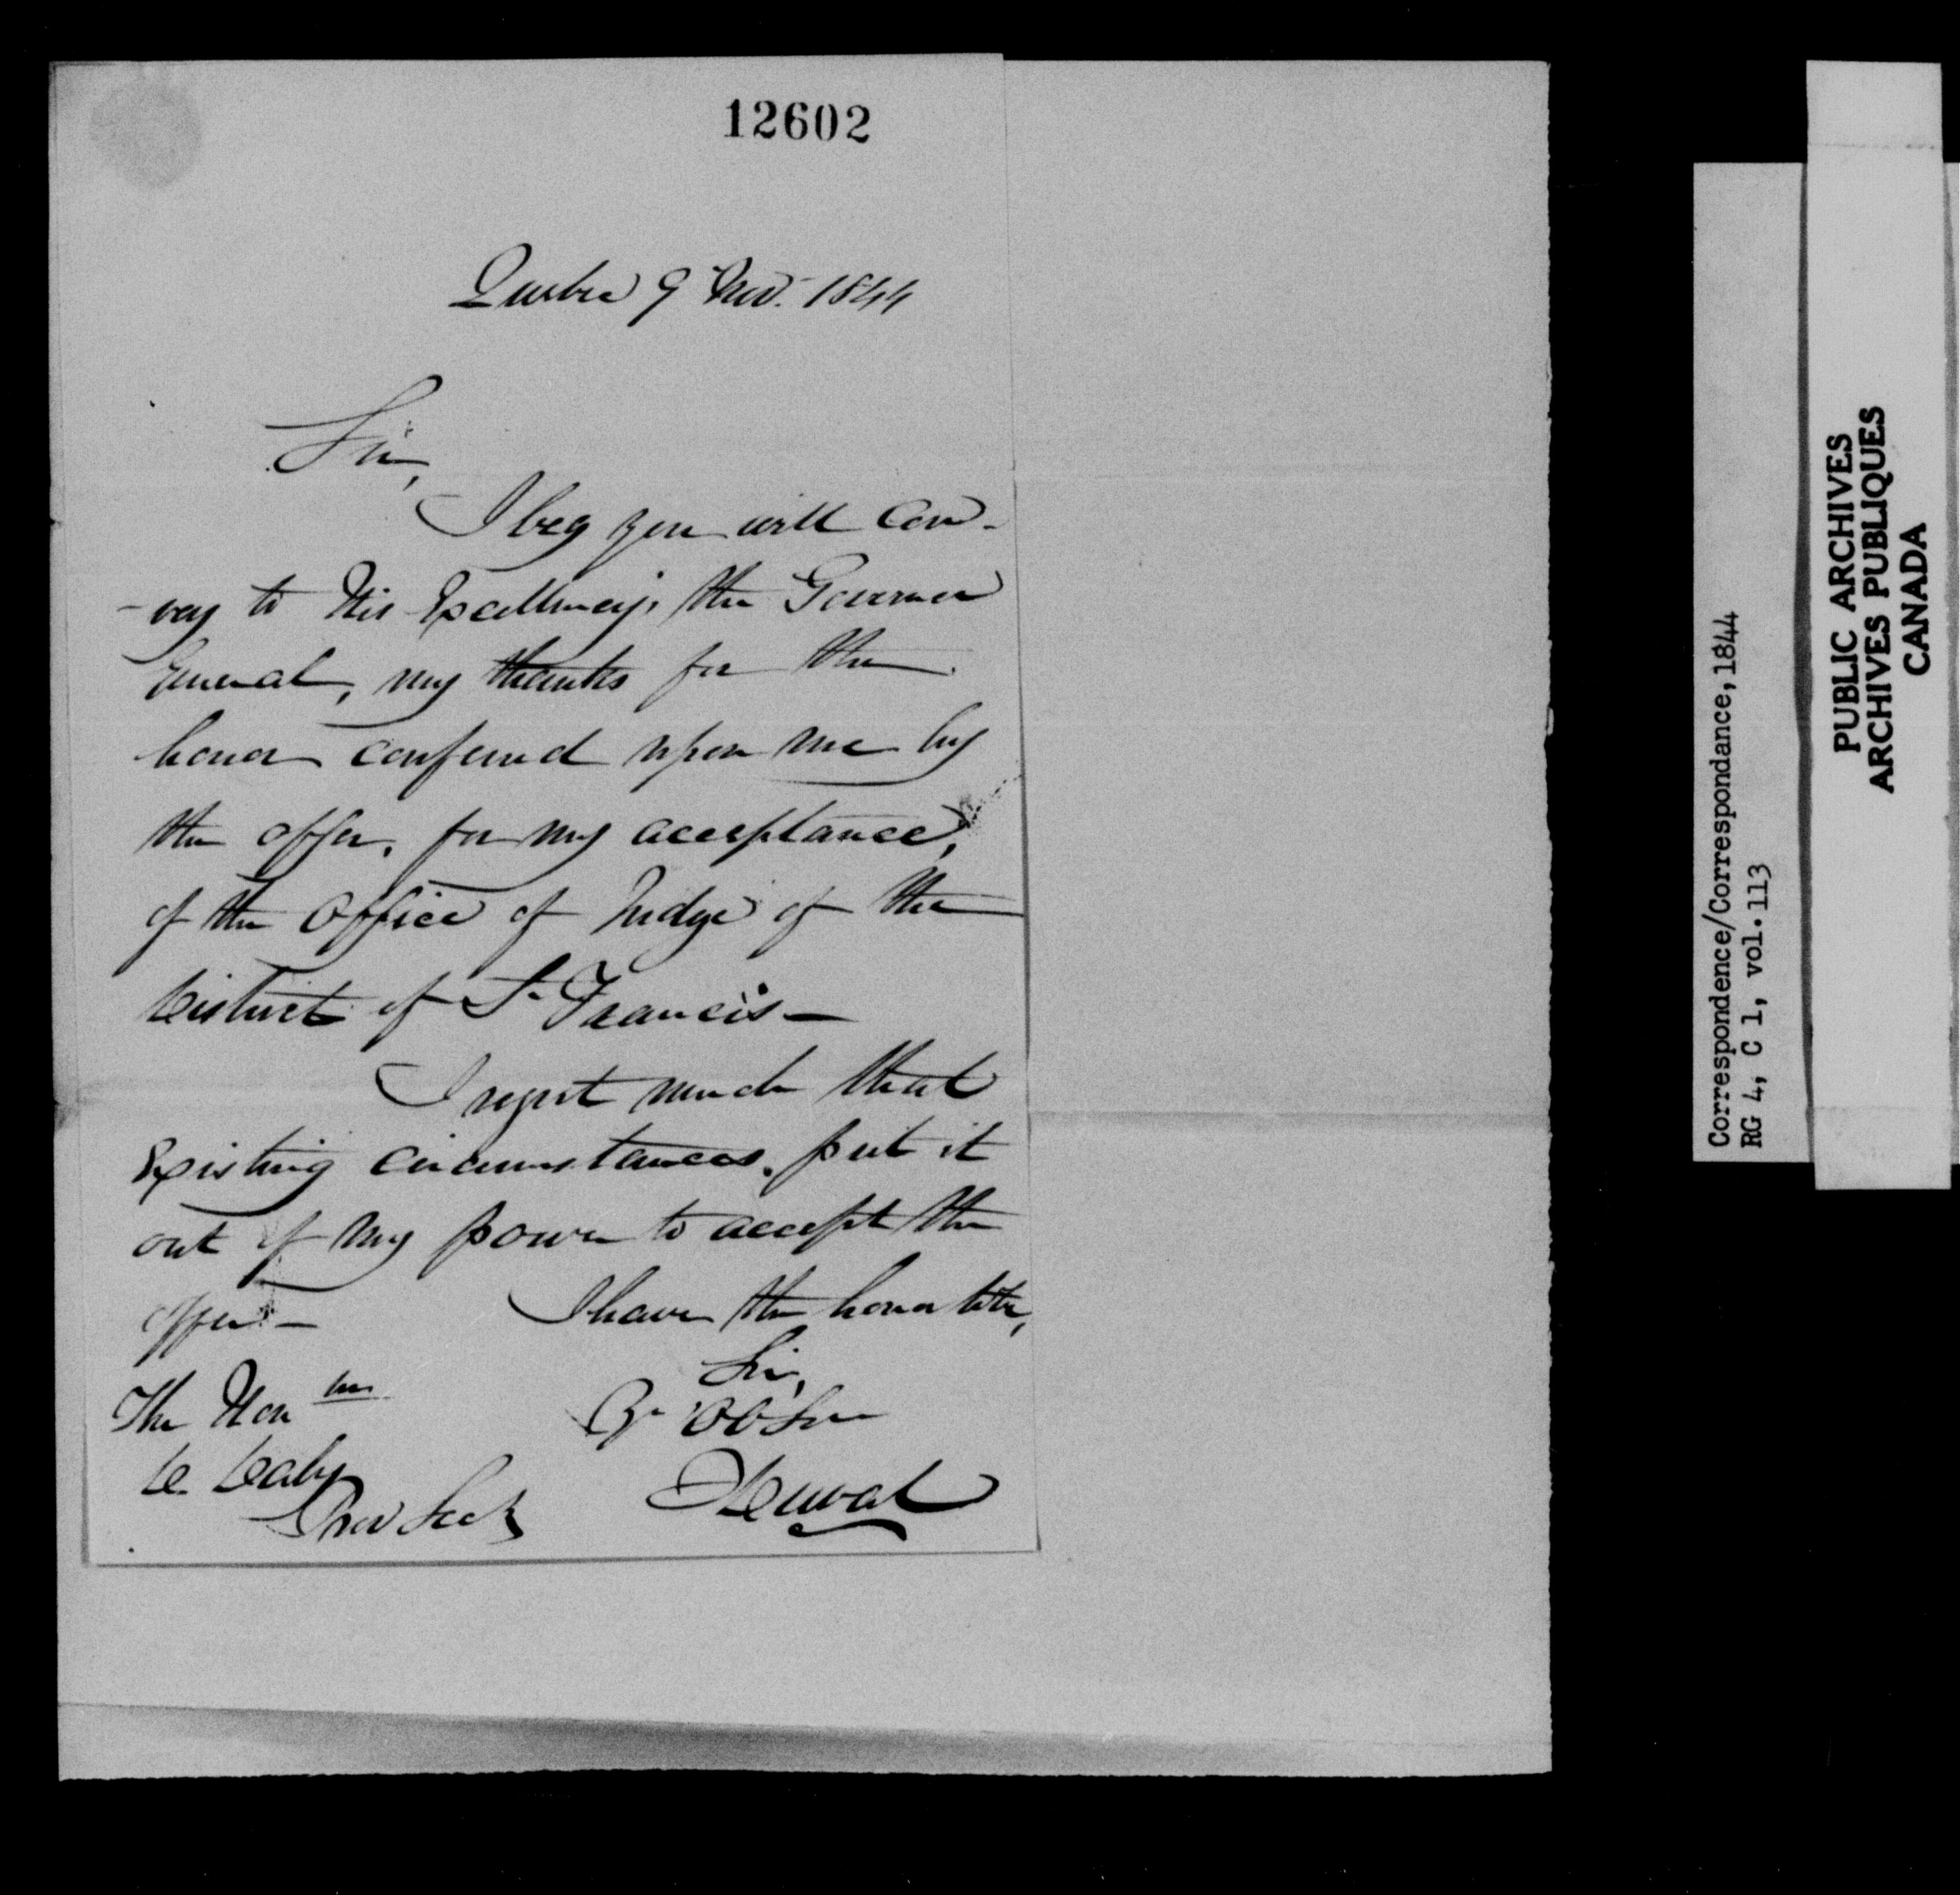 12602
Quebec 9 Nov. 1844
Sir,
I beg you will con-
-vey to His Excellency, the Governor
General, my thanks for the
honor conferred upon me by
the offer, for my acceptance,
of the Office of Judge of the
District of St Francis —
I regret much that
Existing circumstances, put it
out of my power to accept the
offer. —
I have the honor to be,
Sir,
Yr Ob Ser
The Honble
D. Daly
Prov Secy
Duval
Correspondence/Correspondance, 1844
RG 4, C 1, vol. 113
PUBLIC ARCHIVES
ARCHIVES PUBLIQUES
CANADA